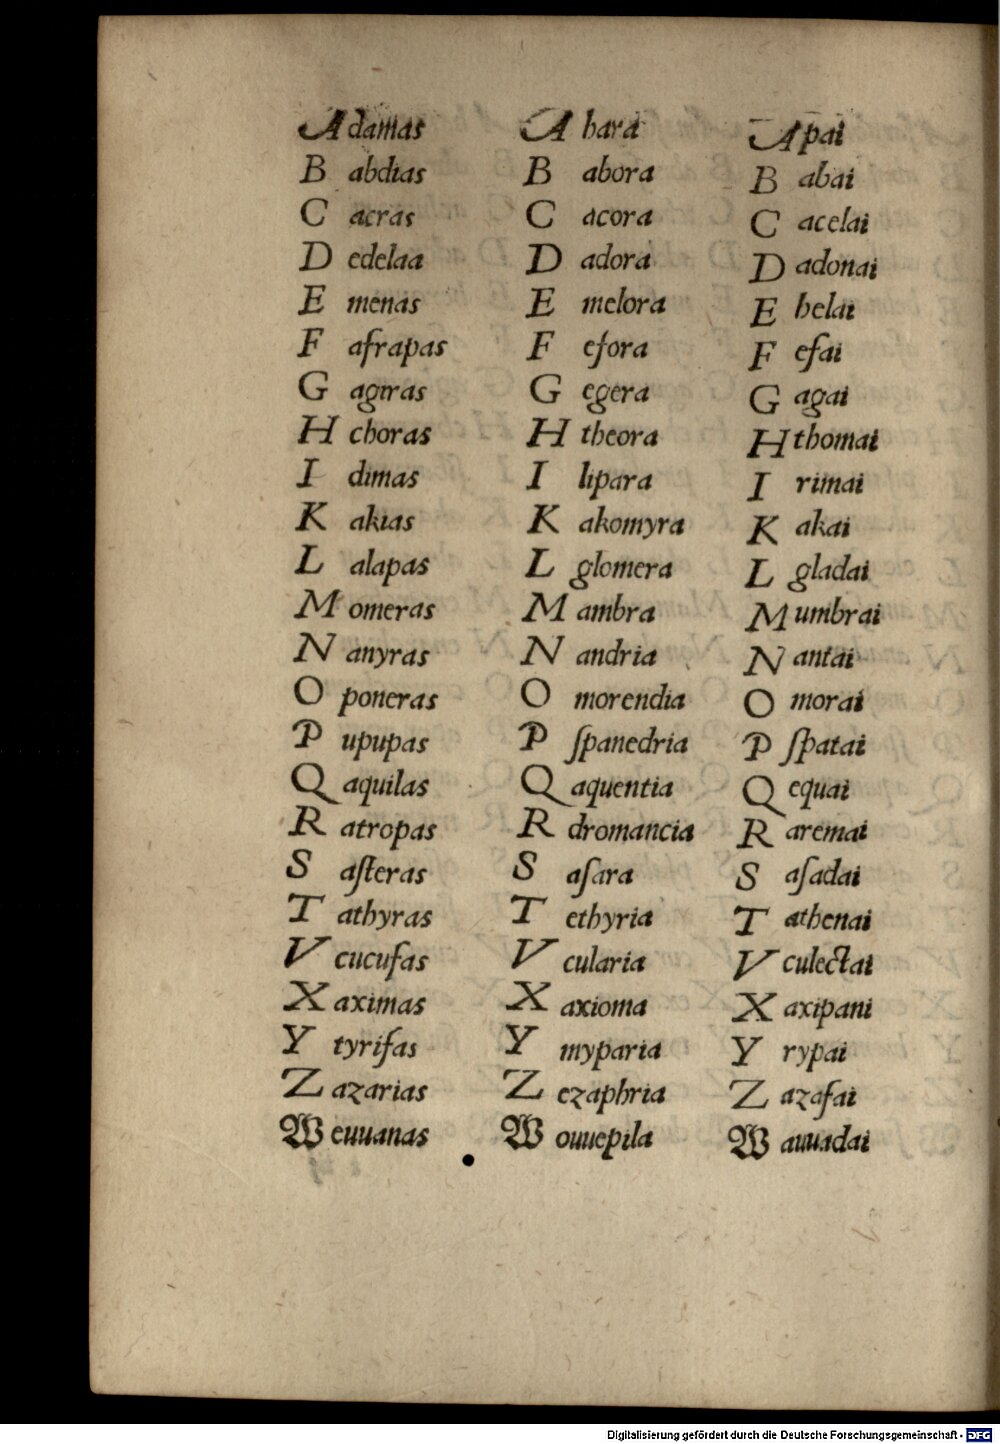 A damas A bara A pai
B abdias B abora B abai
C acras C acora C acelai
D edelaa D adora D adonai
E menas E melora E belai
F afrapas F efora F efai
G agiras G egera G agai
H choras H theora H thomai
I dimas I lipara I rimai
K akias K akomyra K akai
L alapas L glomera L gladai
M omeras M ambra M umbrai
N anyras N andria N antai
O poneras O morendia O morai
P upupas P ſpanedria P ſpatai
Q aquilas Q aquentia Q equai
R atropas R dromancia R aremai
S aſteras S aſara S aſadai
T athyras T ethyria T athenai
V cucufas V cularia V culectai
X aximas X axioma X axipani
Y tyrifas Y myparia Y rypai
Z azarias Z ezaphria Z azafai
W euuanas W ouuepila W auuadai
Digitalisierung gefördert durch die Deutsche Forschungsgemeinschaft - DFG